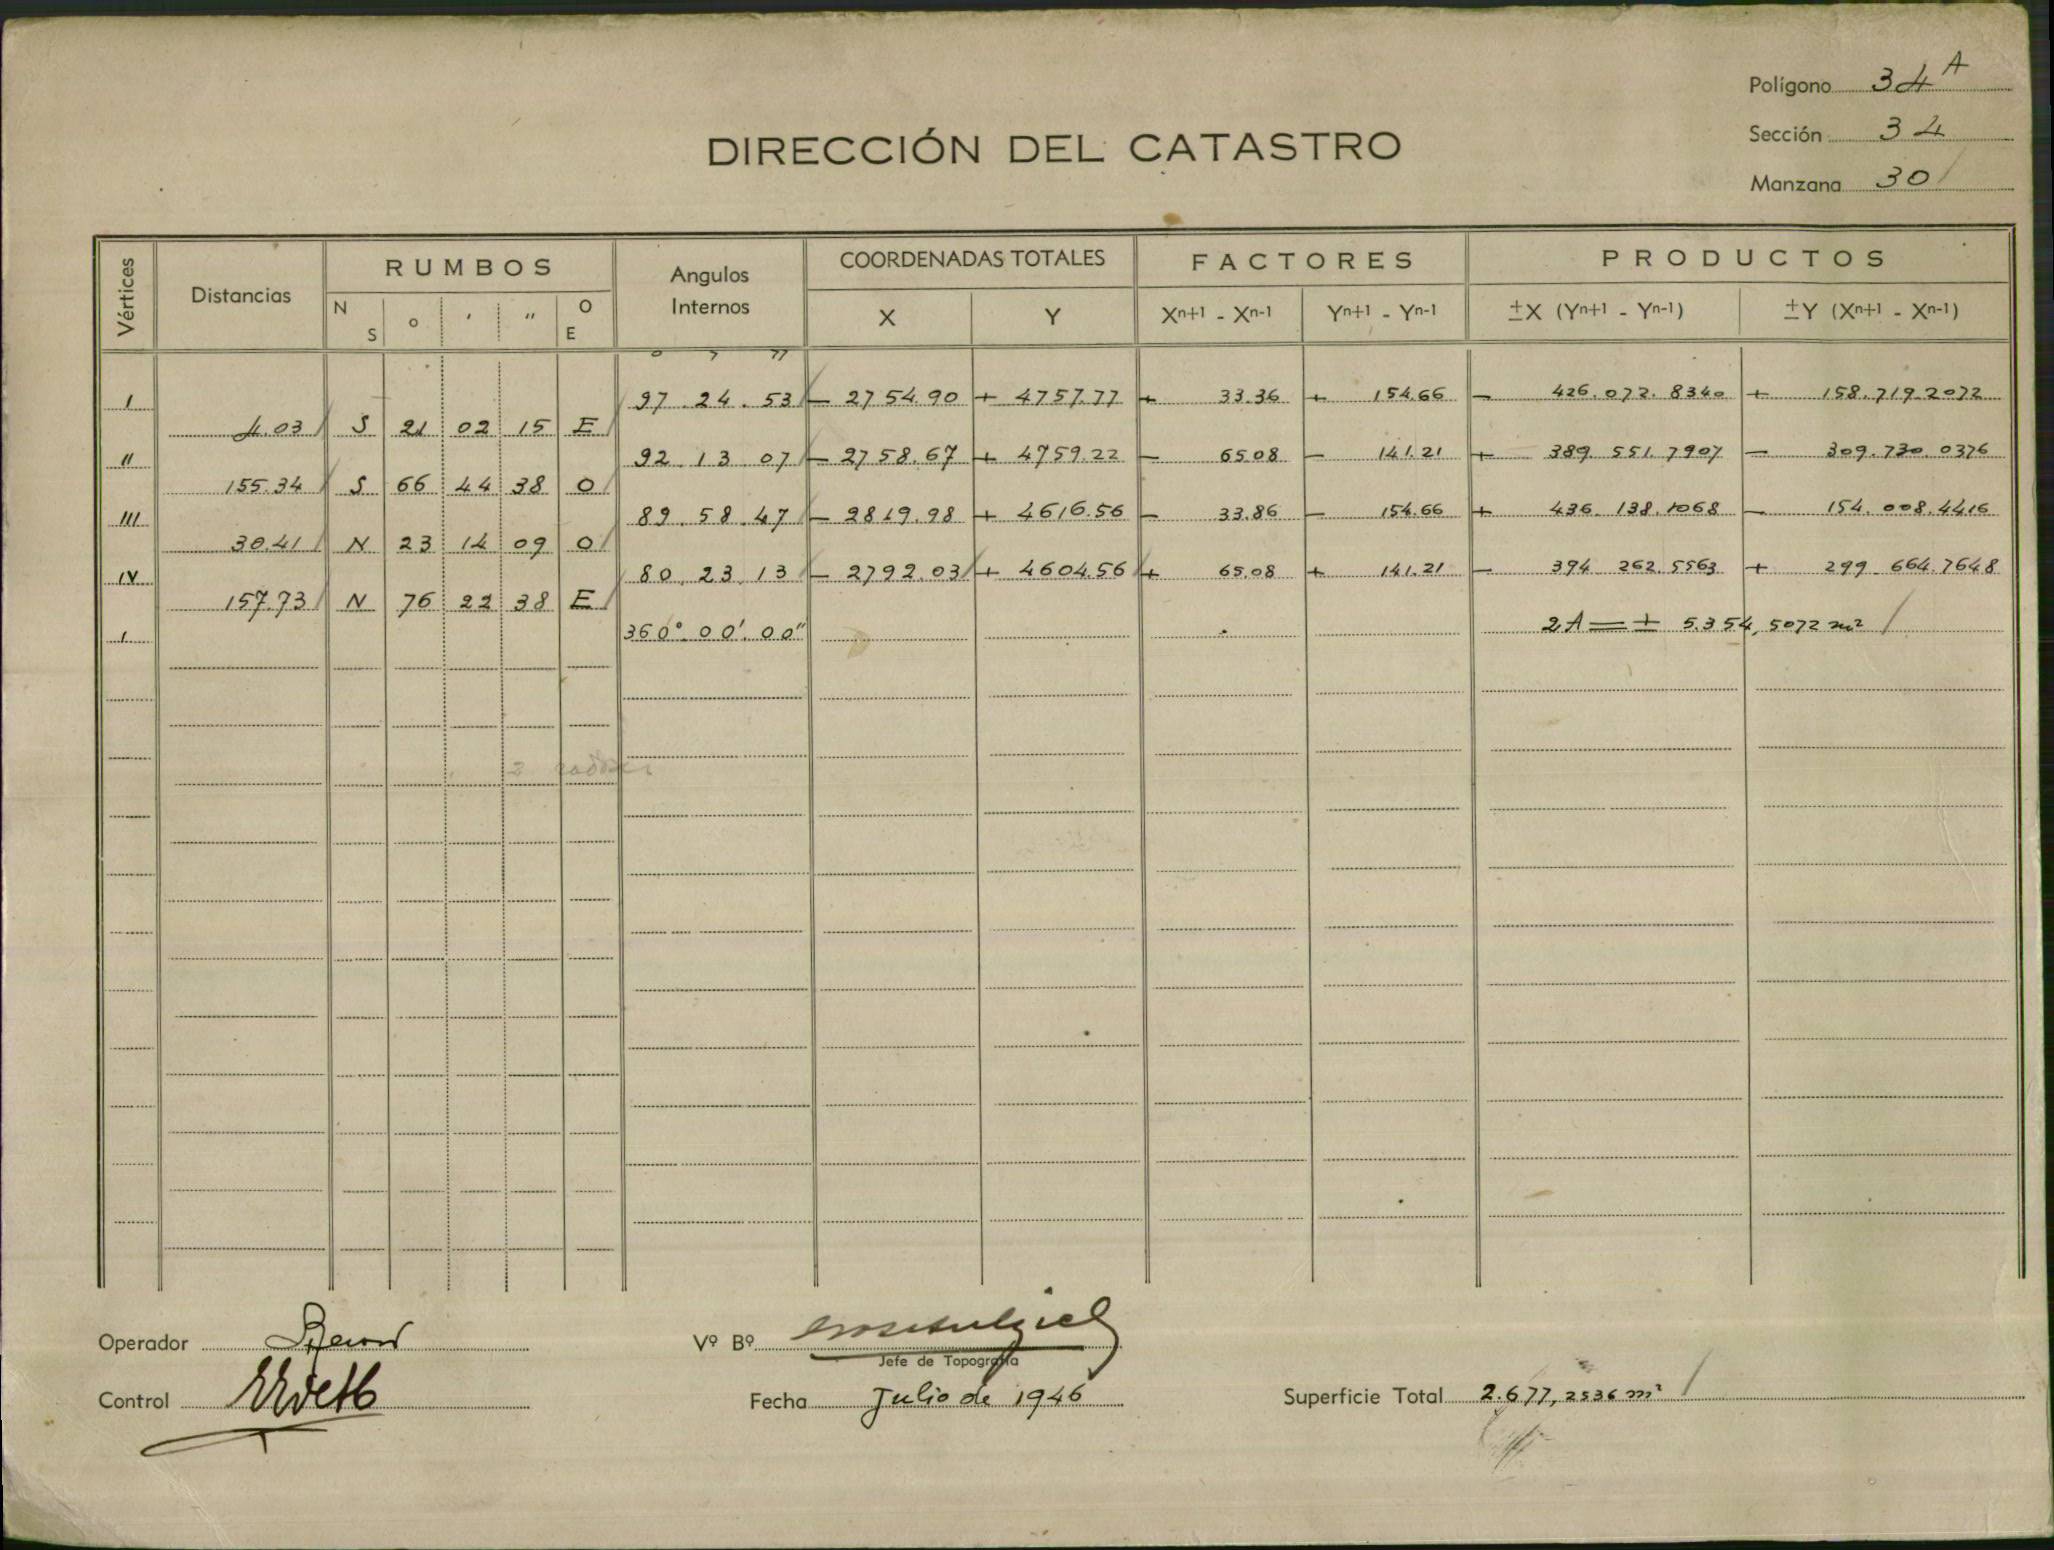 Polígono 34 A
Sección 34
Manzana 30
DIRECCIÓN DEL CATASTRO
Vértices Distancias RUMBOS Angulos Internos COORDENADAS TOTALES FACTORES PRODUCTOS
N S o ' " O E X Y Xn+1 - Xn-1 Yn+1 - Yn-1 ±X (Yn+1 - Yn-1) ±Y (Xn+1 - Xn-1)
o ' "
I 97 . 24 . 53 - 2754.90 + 4757.77 + 33.36 + 154.66 - 426.072.8340 + 158.719.2072
4.03 S 21 02 15 E
II 92 . 13 07 - 2758.67 + 4759.22 - 65.08 - 141.21 + 389 551.7907 - 309.730.0376
155.34 S 66 44 38 O
III 89 . 58 . 47 - 2819.98 + 4616.56 - 33.86 - 154.66 + 436.138.1068 - 154.008.4416
30.41 N 23 14 09 O
IV 80 . 23 . 13 - 2792.03 + 4604.56 + 65.08 + 141.21 - 394 262.5563 + 299.664.7648
157.73 N 76 22 38 E
I 360° 00' 00" 2A = ± 5.354,5072 m²
Operador
Vº Bº
Jefe de Topografía
Control
Fecha Julio de 1946
Superficie Total 2.677,2536 m²